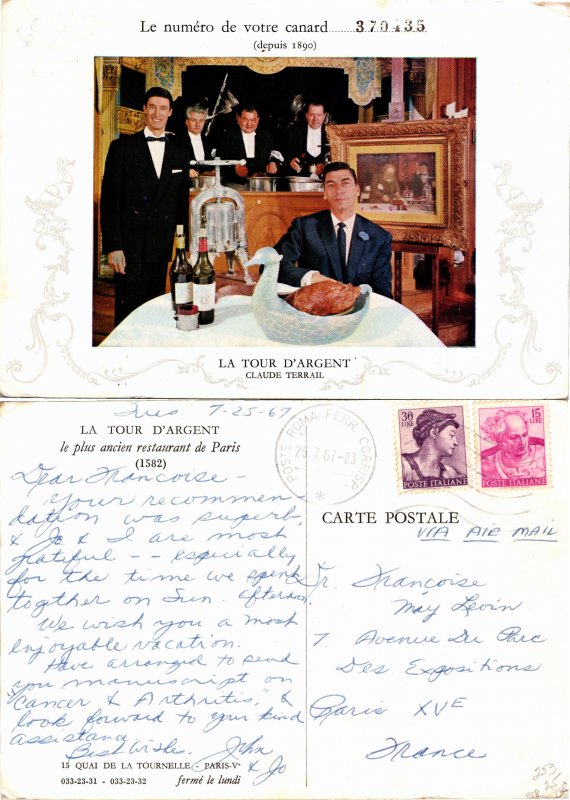 Le numéro de votre canard 370435
(depuis 1890)
LA TOUR D'ARGENT
CLAUDE TERRAIL
Tues 7-25-67
LA TOUR D'ARGENT
le plus ancien restaurant de Paris
(1582)
Dear Francoise -
Your recommen-
dation was superb,
& Jo & I are most
grateful -- especially
for the time we spent
together on Sun. afternoon.
We wish you a most
enjoyable vacation.
Have arranged to send
you manuscript on
"Cancer & Arthritis," &
look forward to your kind
assistance.
Best Wishes. John
& Jo
15 QUAI DE LA TOURNELLE - PARIS-Vᵉ
033-23-31 - 033-23-32 fermé le lundi
POSTE ROMA FERR. CORRISP.
25.7.67-23
30 LIRE
POSTE ITALIANE
15 LIRE
POSTE ITALIANE
CARTE POSTALE
VIA AIR MAIL
Dr. Francoise
May Levin
7 Avenue Du Parc
Des Expositions
Paris XVE
France